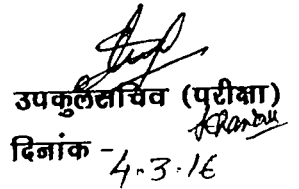 उपकुलसचिव (परीक्षा)
दिनांक - 4.3.16